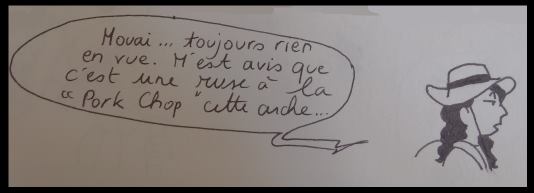 Mouai... toujours rien
en vue. M'est avis que
c'est une ruse à la
"Pork Chop" cette arche...